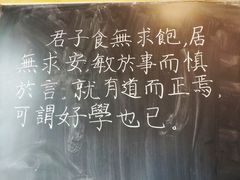 君子食無求飽,居
無求安,敏於事而慎
於言,就有道而正焉,
可謂好學也已。